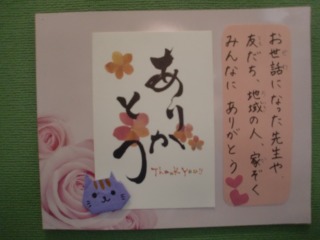 ありがとう
Thank You!!
お世話になった先生や、
友だち、地域の人、家ぞく
みんなに ありがとう